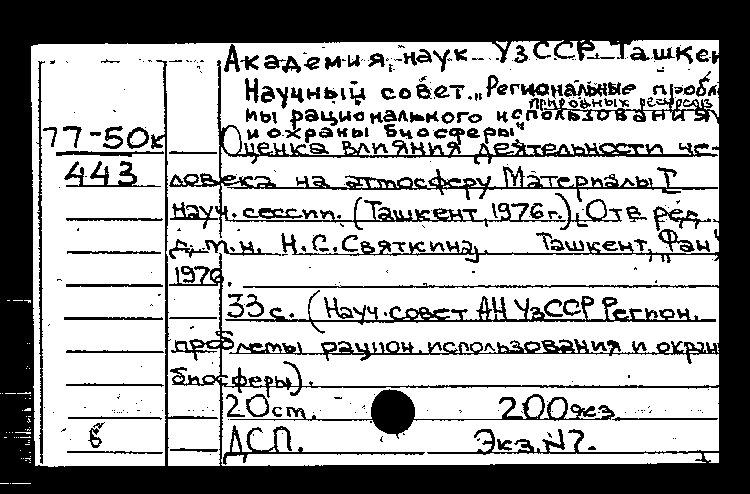 Академия наук УзССР. Ташкен
Научный совет „Региональные пробле
мы рационального использования
природных ресурсов
и охраны биосферы"
77-50к
Оценка влияния деятельности че-
443
ловека на атмосферу Материалы I
науч. сессии. (Ташкент, 1976г.), Отв ред.
д.т.н. Н.С. Святкина, Ташкент, „Фан",
1976.
33 с. (Науч. совет АН УзССР Регион.
проблемы рацион. использования и охран
биосферы).
20 ст. 200 экз
б ДСП. Экз. №7.
1